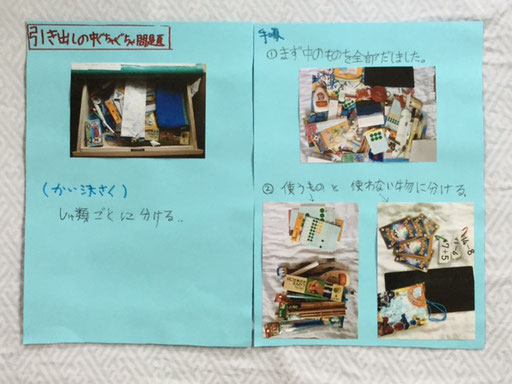 引き出しの中ぐちゃぐちゃ問題
(かい決さく)
しゅ類ごとに分ける。
手順
①まず中のものを全部だしました。
②使うものと使わない物に分ける。
7+5